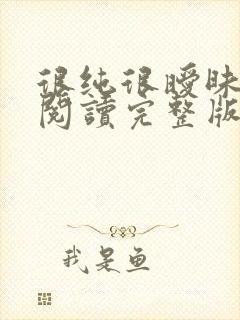 很纯很暧昧
閱讀完整版
我是鱼